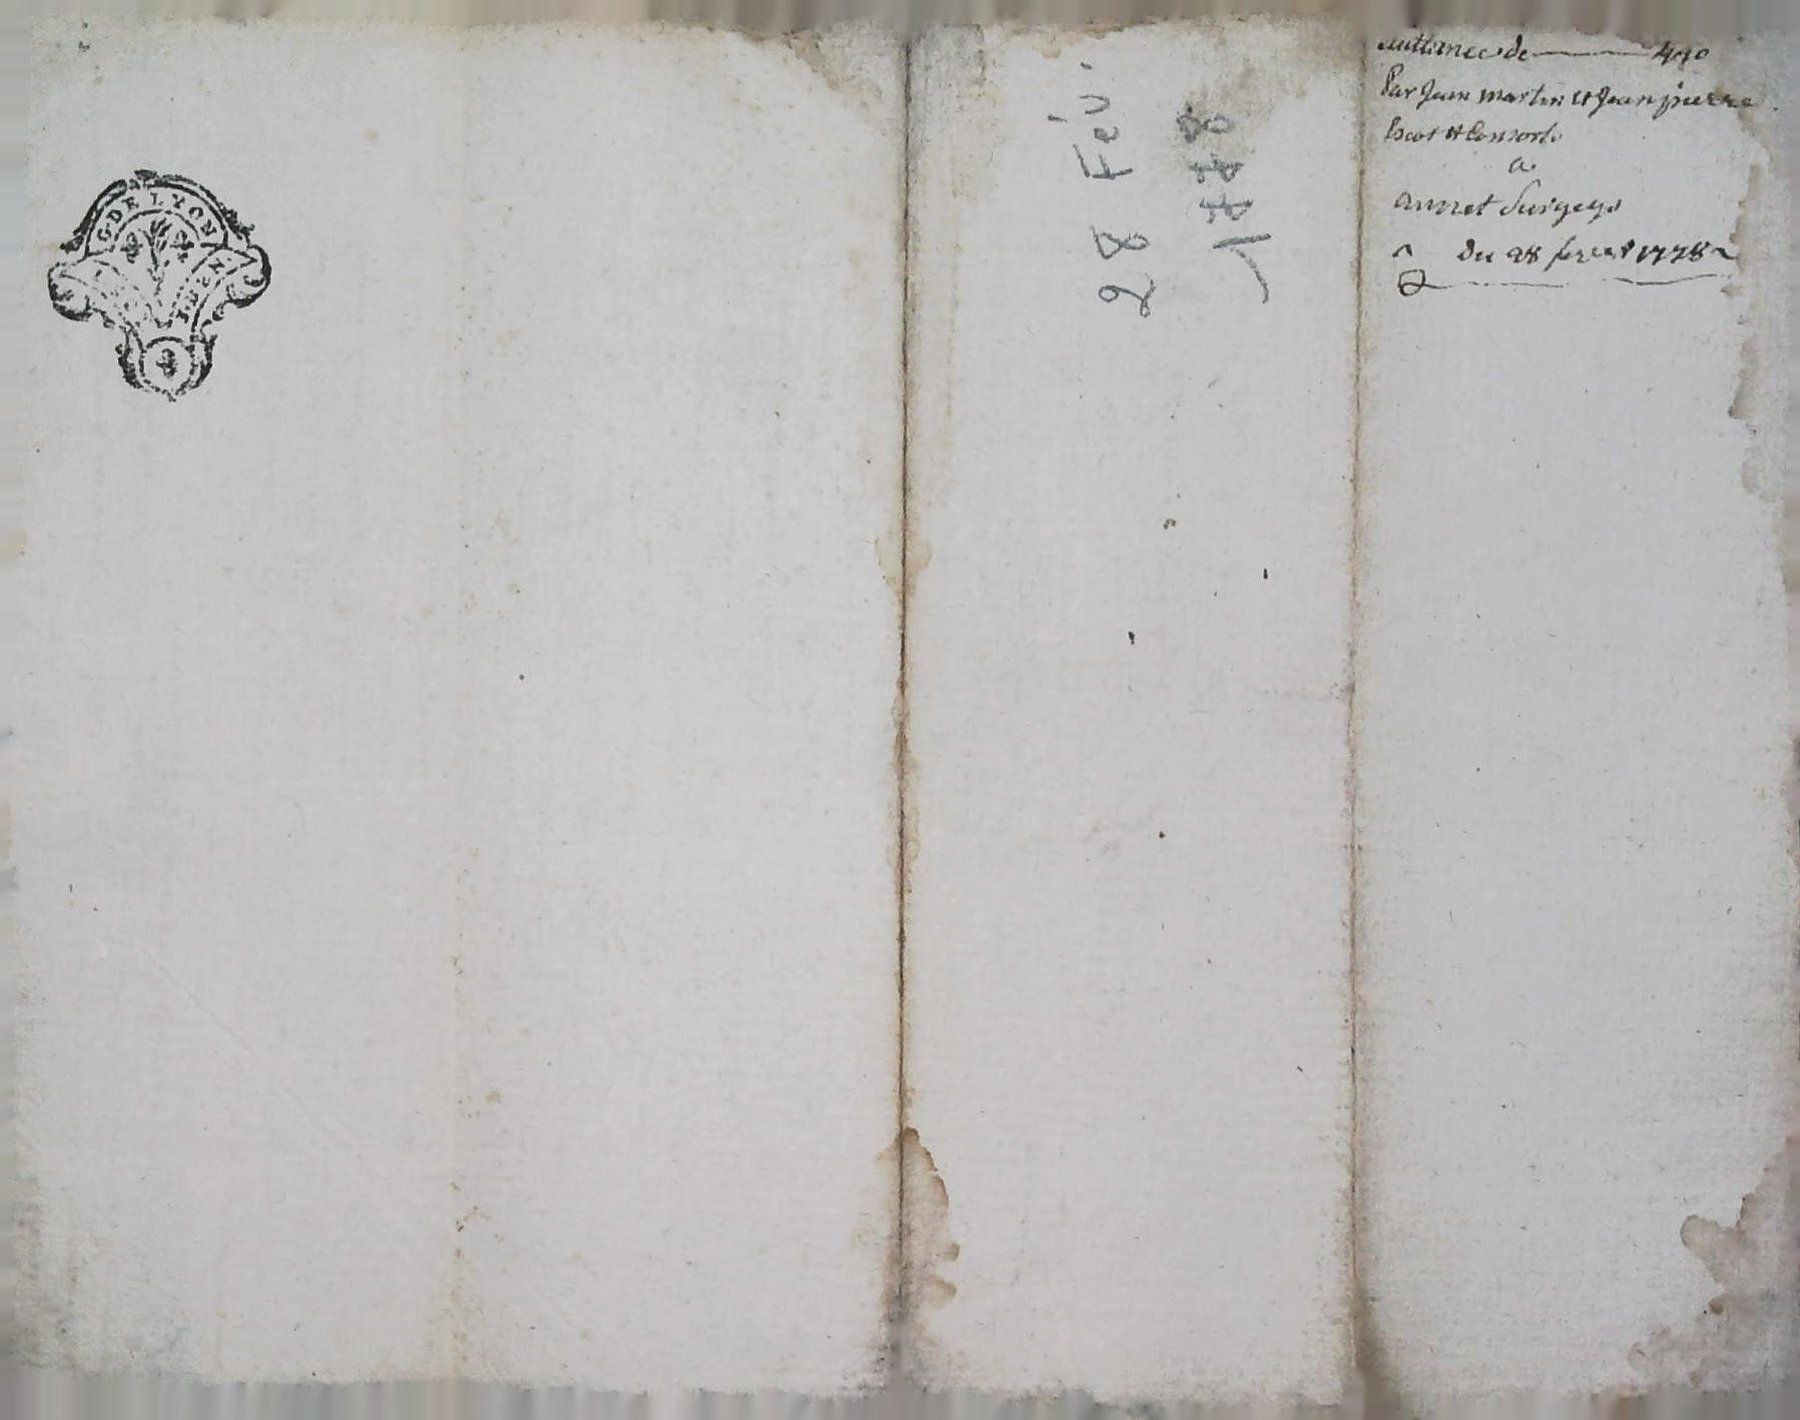 G. DE LYON
28 Fév.
1778
quittance de — 490
Par Jean martin et Jean pierre
Escot et Consorts
a
annet Surgeys
du 28 fevrier 1778